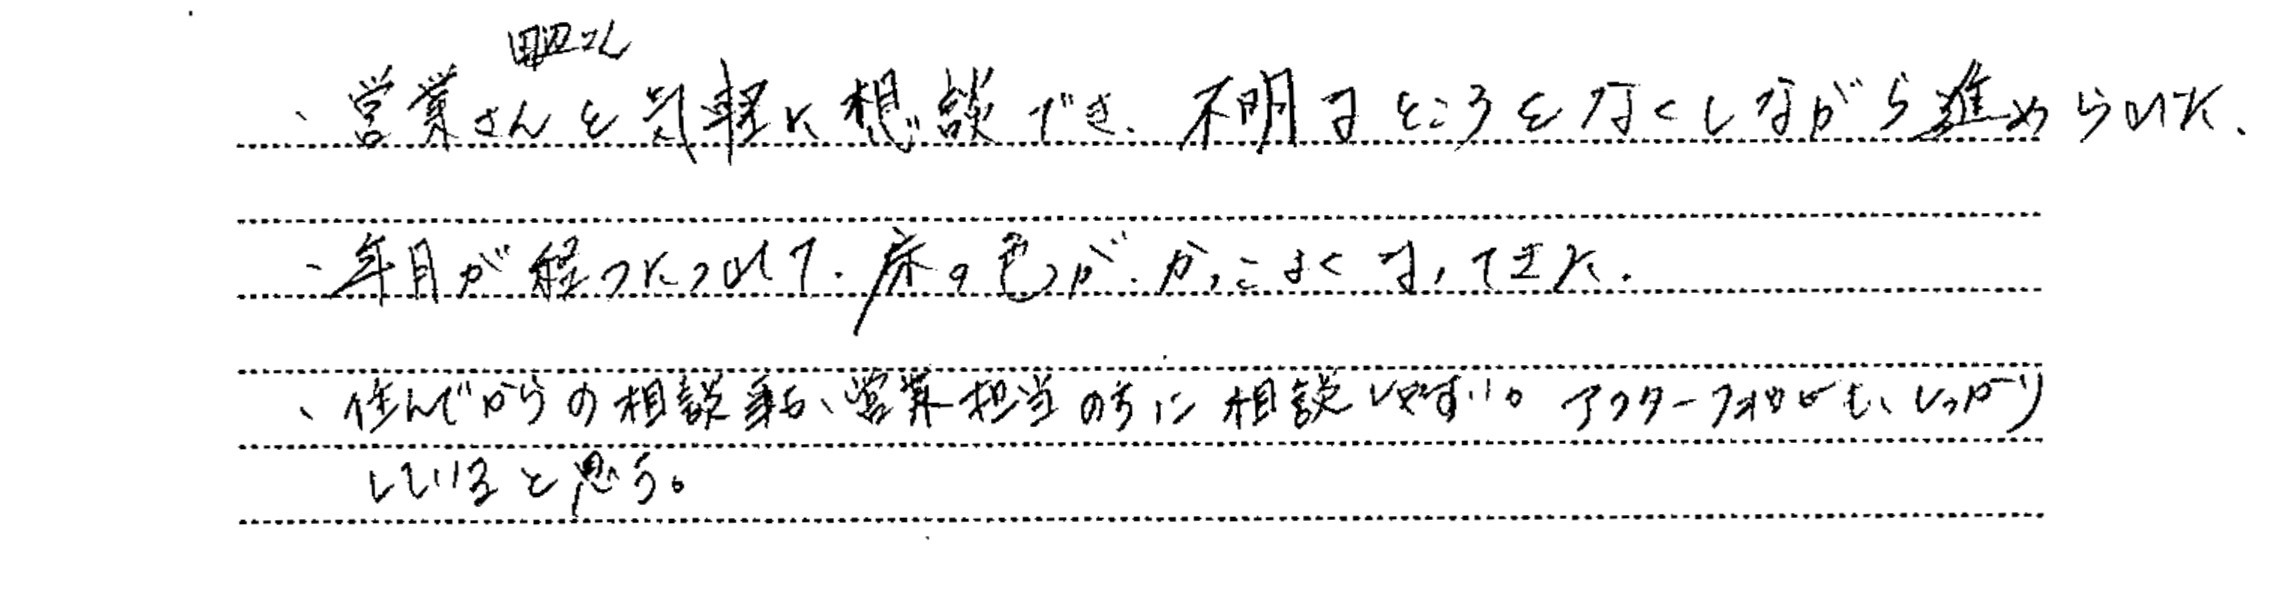 田辺さん
、営業さんを気軽に想談でき、不明なところをなくしながら進められた、
、年月が経つにつれて、床の色が、かっこよくなってきた。
、住んでからの相談事も、営業担当のちに相談しやすい。アフターフォローも、しっかり
していると思う。